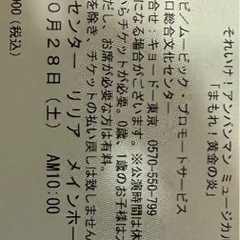 それいけ!アンパンマン ミュージカル
「まもれ!黄金の炎」
ビ/ムービック・プロモートサービス
ロ総合文化センター
合せ:キョードー東京 0570-550-799
になる場合がございます。※公演時間は休
らチケットが必要。0歳、1歳のお子様は
だし、お席が必要な方は有料。
を除き、チケットの払い戻しは致しません
センター リリア メインホー
0月28日(土) AM10:00
900(税込)